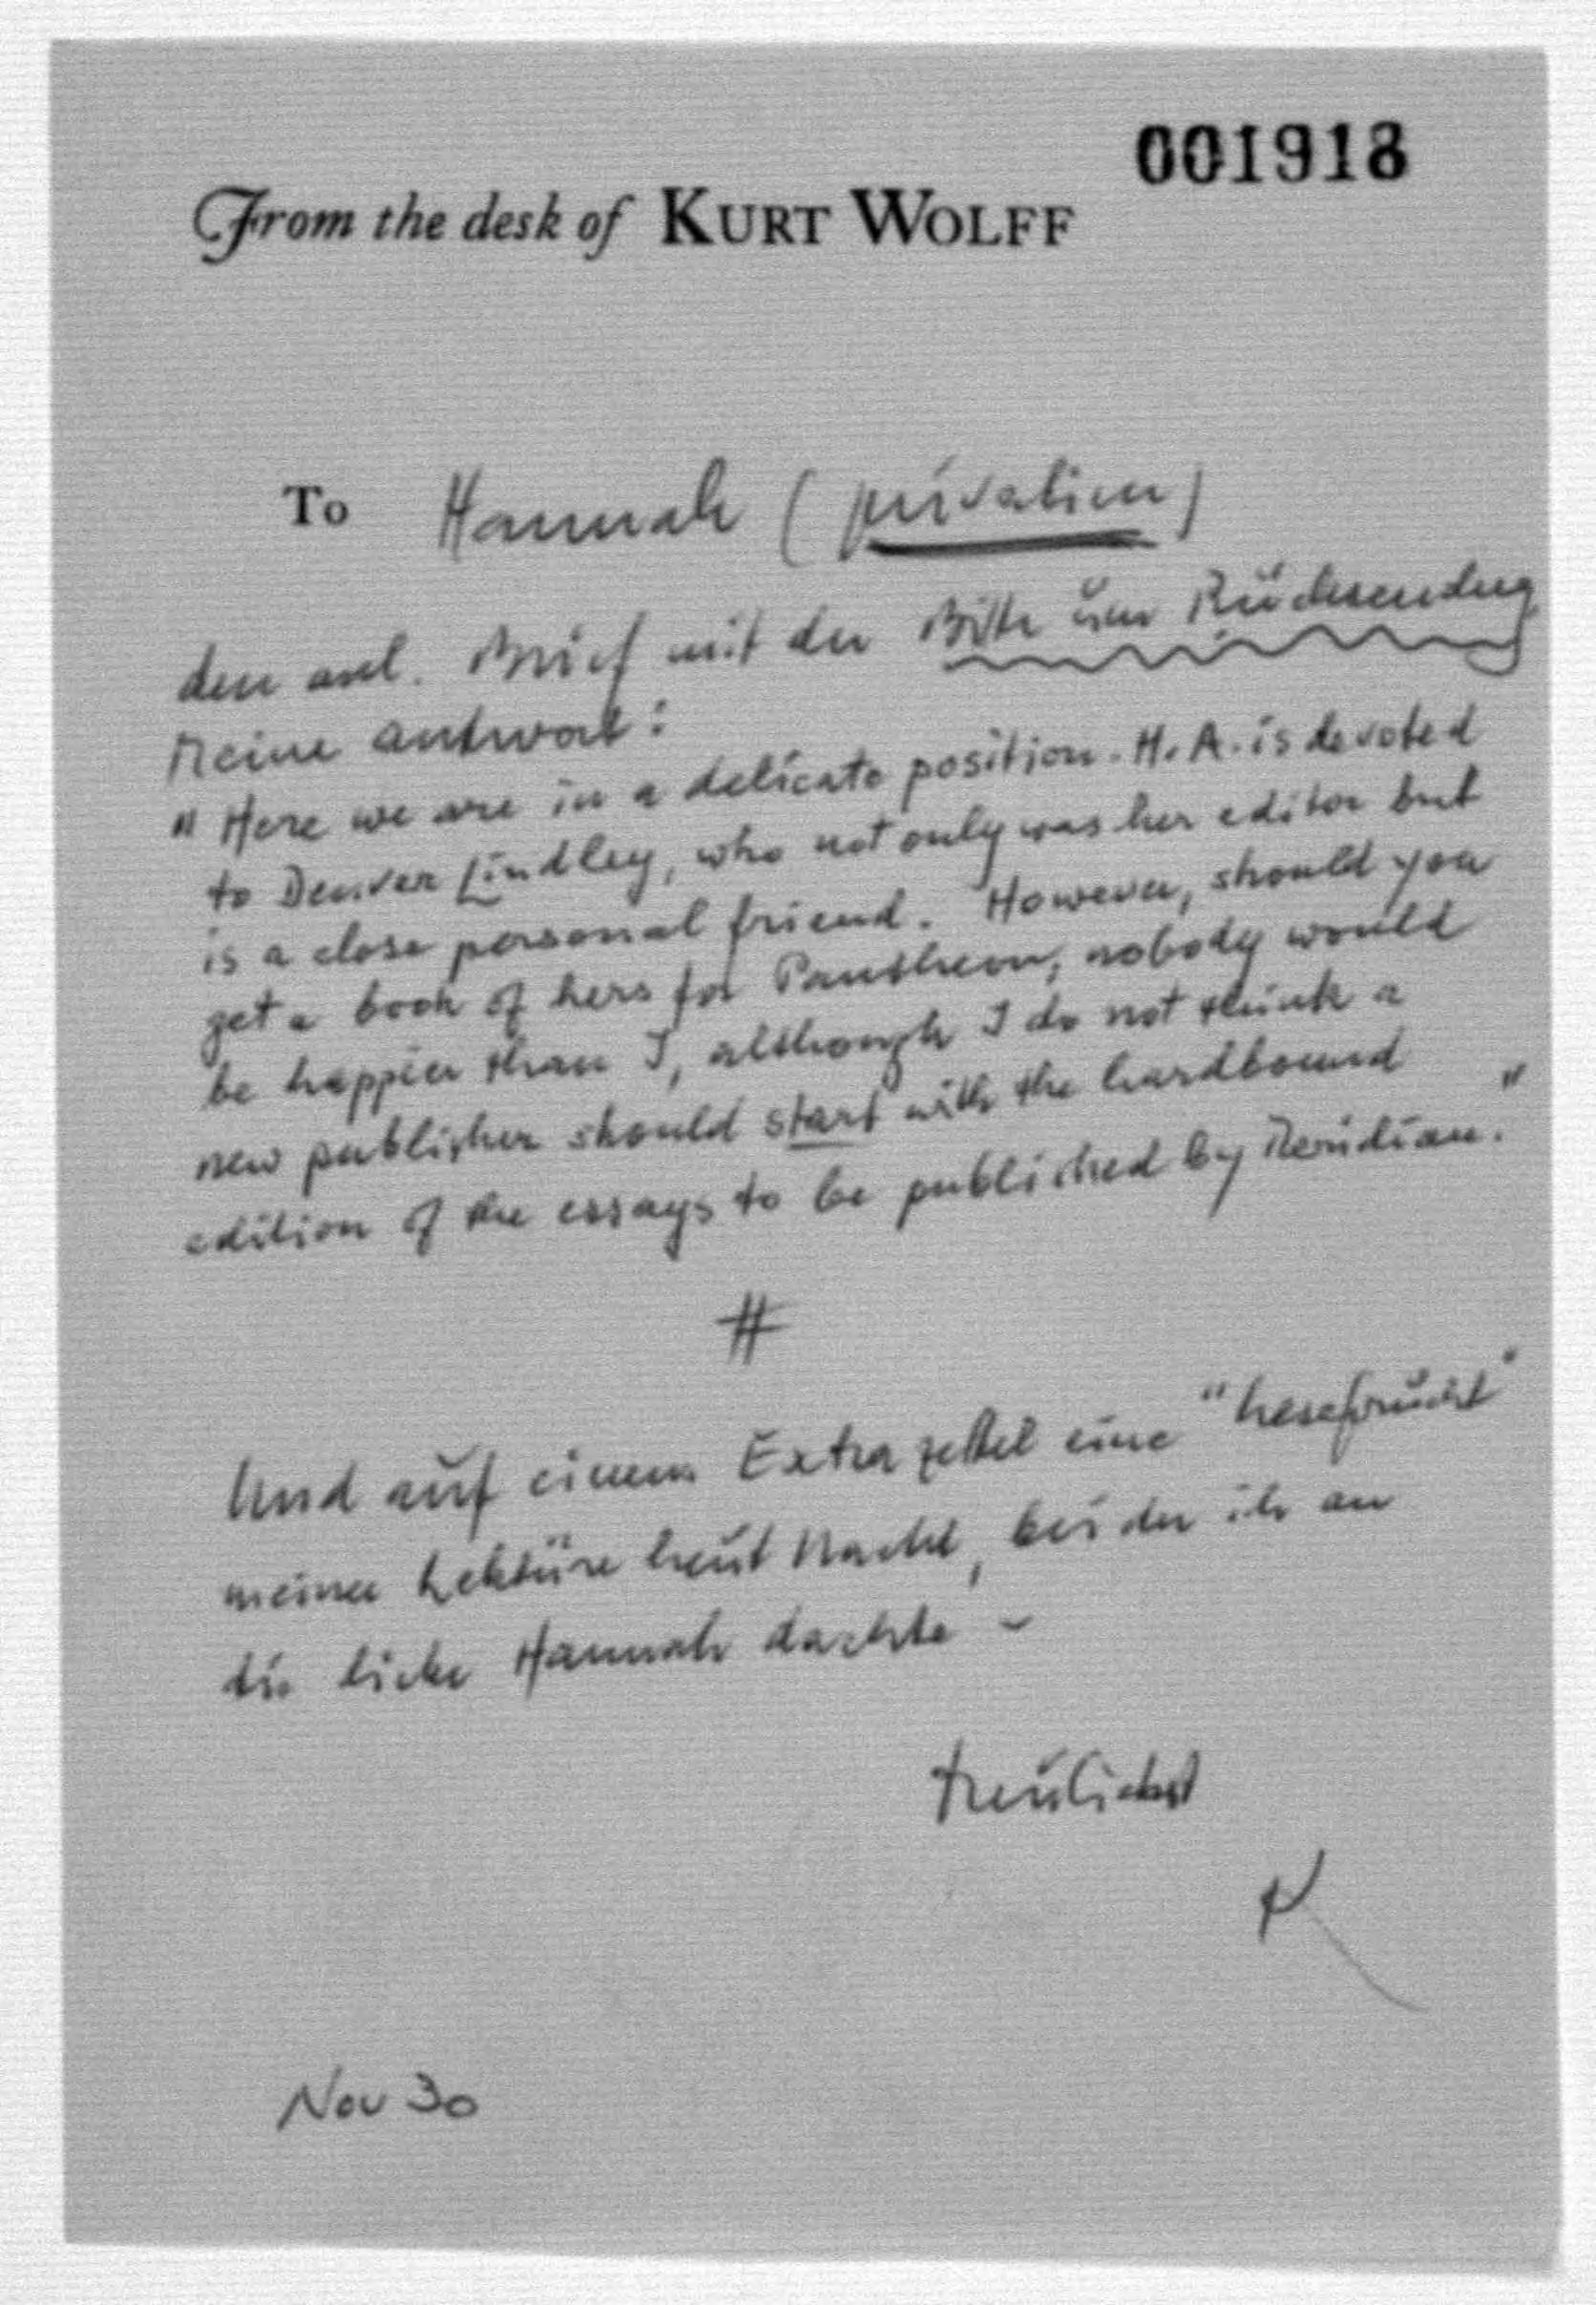 001918
From the desk of KURT WOLFF
To Hannah (privatim)
den anl. Brief mit der Bitte um Rücksendung
Meine Antwort:
" Here we are in a delicate position. H. A. is devoted
to Denver Lindley, who not only was her editor but
is a close personal friend. However, should you
get a book of hers for Pantheon, nobody would
be happier than I, although I do not think a
new publisher should start with the hardbound
edition of the essays to be published by Meridian."
#
Und auf einem Extrazettel eine "Lesefrucht"
meiner Lektüre heut Nacht, bei der ich an
die liebe Hannah dachte –
treulichst
K
Nov 30